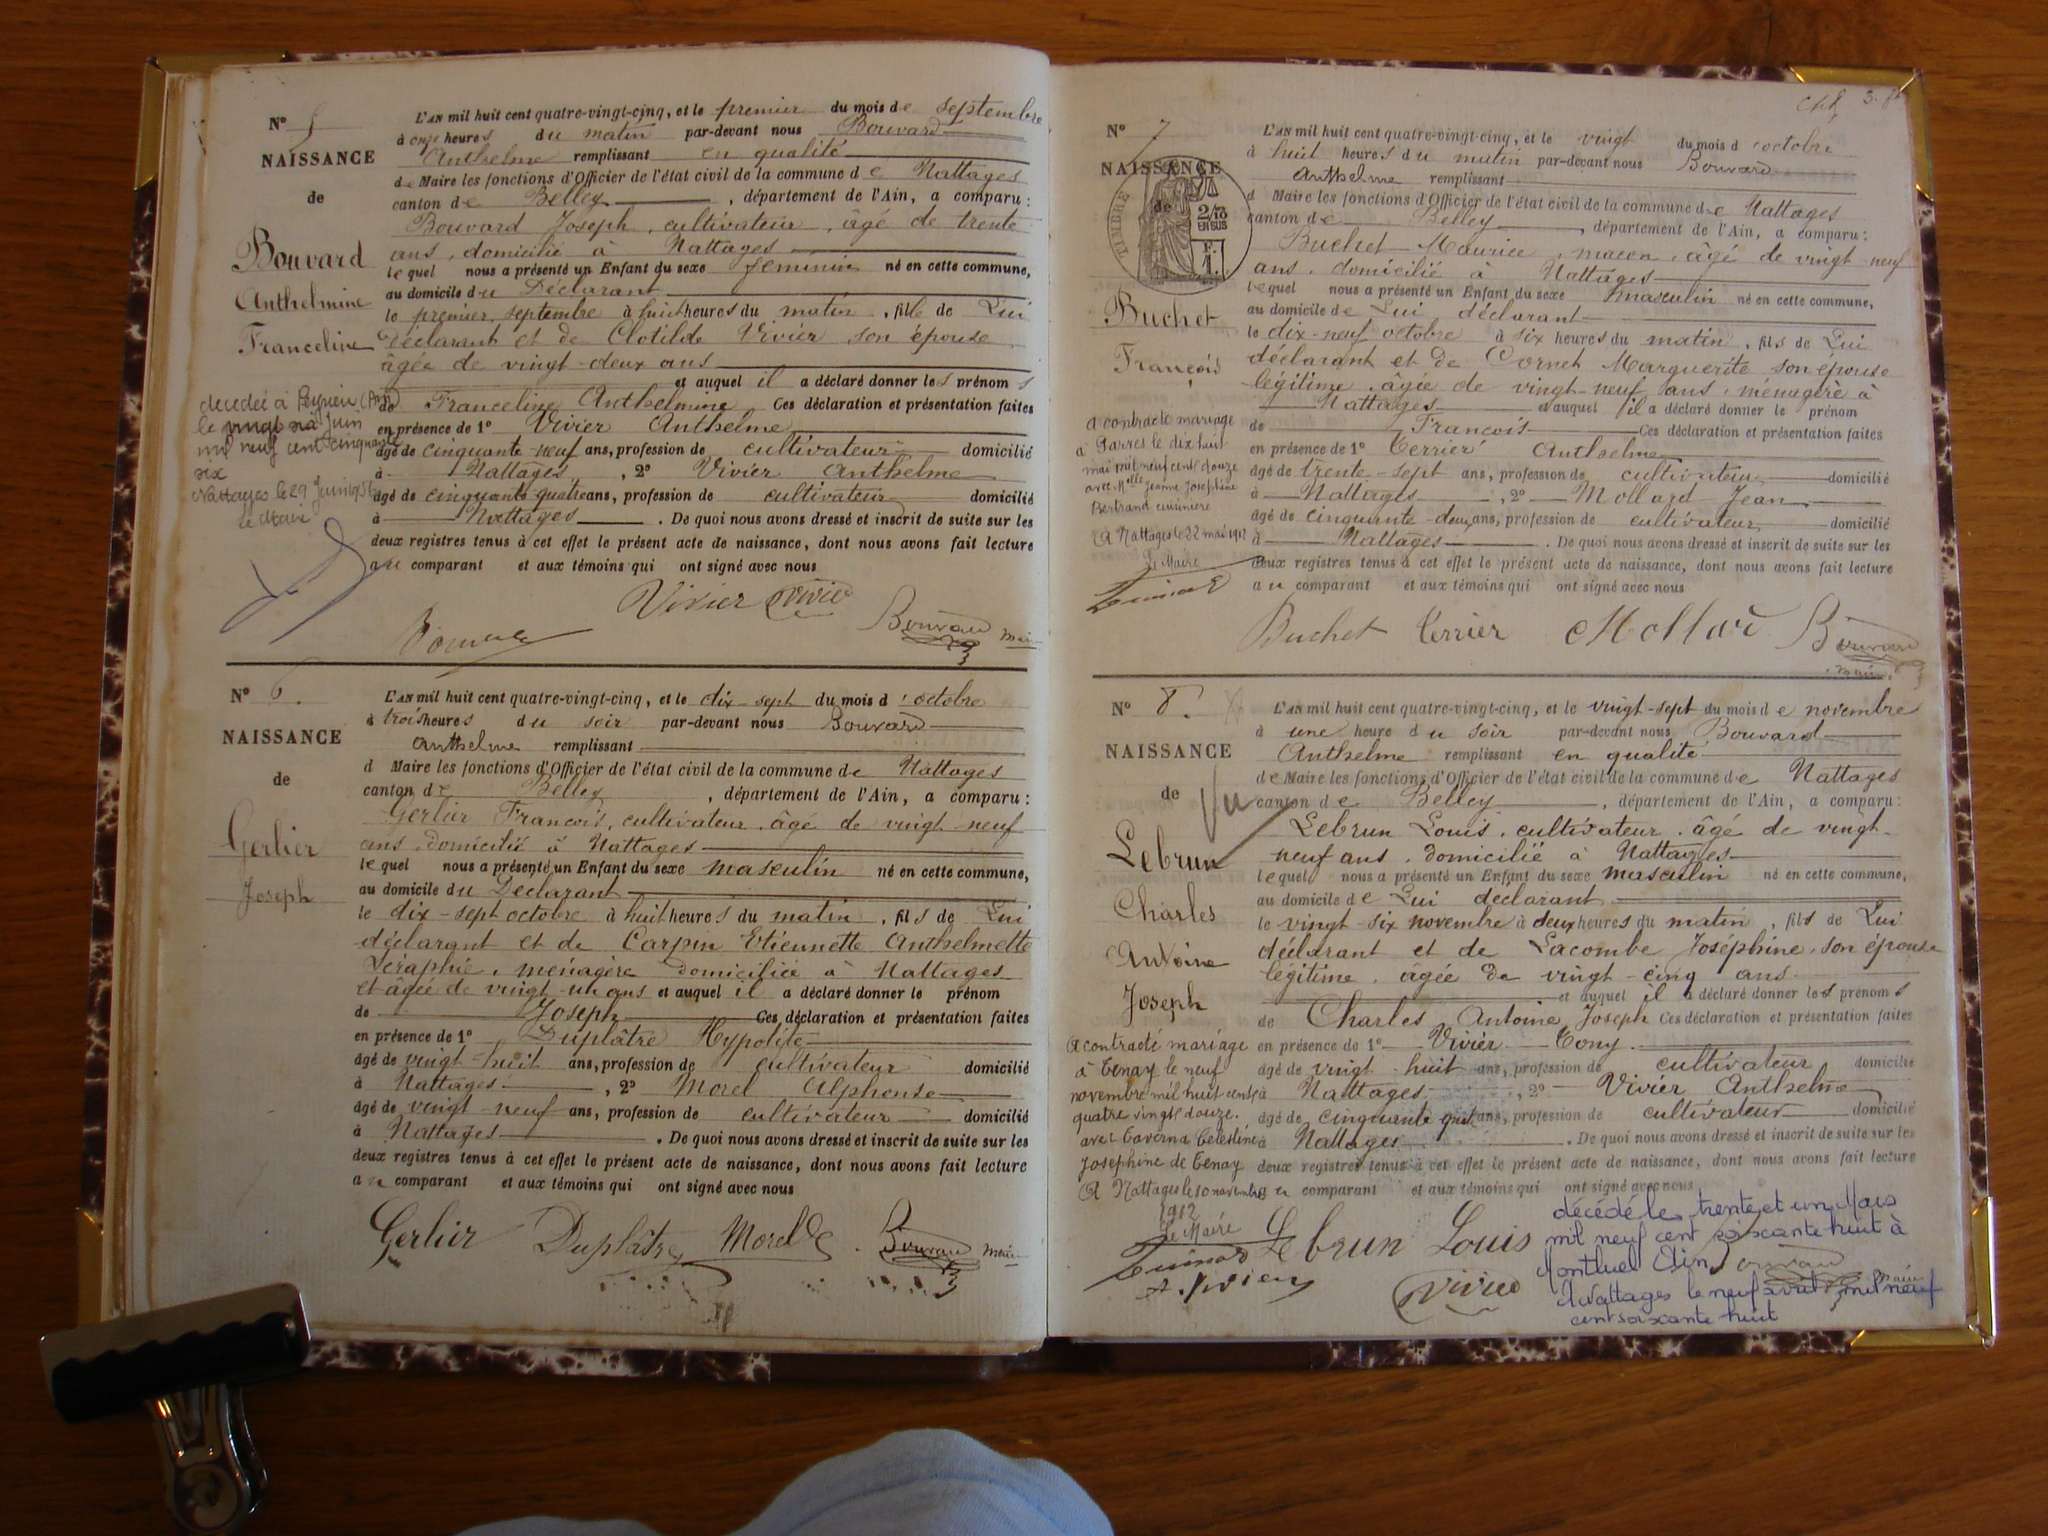 N° 5
NAISSANCE
de
Bouvard
Anthelmine
Franceline
décédée à Peyrieu (Ain)
le vingt six Juin
mil neuf cent cinquante
six
Nattages le 29 Juin 1956
le Maire
L'AN mil huit cent quatre-vingt-cinq, et le premier du mois de septembre
à onze heures du matin par-devant nous Bouvard
Anthelme remplissant en qualité
de Maire les fonctions d'Officier de l'état civil de la commune de Nattages
canton de Belley, département de l'Ain, a comparu:
Bouvard Joseph, cultivateur, âgé de trente
ans, domicilié à Nattages
lequel nous a présenté un Enfant du sexe féminin né en cette commune,
au domicile du Déclarant
le premier septembre à huit heures du matin, fille de Lui
déclarant et de Clotilde Vivier son épouse
âgée de vingt-deux ans
et auquel il a déclaré donner les prénoms
de Franceline Anthelmine Ces déclaration et présentation faites
en présence de 1° Vivier Anthelme
âgé de cinquante-neuf ans, profession de cultivateur domicilié
à Nattages, 2° Vivier Anthelme
âgé de cinquante quatre ans, profession de cultivateur domicilié
à Nattages. De quoi nous avons dressé et inscrit de suite sur les
deux registres tenus à cet effet le présent acte de naissance, dont nous avons fait lecture
au comparant et aux témoins qui ont signé avec nous
Vivier Vivier
Bouvard Bouvard maire
N° 6.
NAISSANCE
de
Gerlier
Joseph
L'AN mil huit cent quatre-vingt-cinq, et le dix-sept du mois d'octobre
à trois heures du soir par-devant nous Bouvard
Anthelme remplissant
d Maire les fonctions d'Officier de l'état civil de la commune de Nattages
canton de Belley, département de l'Ain, a comparu:
Gerlier François, cultivateur, âgé de vingt-neuf
ans, domicilié à Nattages
lequel nous a présenté un Enfant du sexe masculin né en cette commune,
au domicile du Déclarant
le dix-sept octobre à huit heures du matin, fils de Lui
déclarant et de Carpin Etiennette Anthelmette
Séraphie, ménagère domiciliée à Nattages
et âgée de vingt-un ans et auquel il a déclaré donner le prénom
de Joseph Ces déclaration et présentation faites
en présence de 1° Duplâtre Hypolite
âgé de vingt-huit ans, profession de cultivateur domicilié
à Nattages, 2° Morel Alphonse
âgé de vingt-neuf ans, profession de cultivateur domicilié
à Nattages. De quoi nous avons dressé et inscrit de suite sur les
deux registres tenus à cet effet le présent acte de naissance, dont nous avons fait lecture
au comparant et aux témoins qui ont signé avec nous
Gerlier Duplâtre Morel Bouvard maire
N° 7
NAISSANCE
de
TIMBRE
2/10
EN SUS
F.
1.
Buchet
François
a contracté mariage
à Parves le dix huit
mai mil neuf cent douze
avec Melle Jeanne Joséphine
Bertrand cuisinière
A Nattages le 22 mai 1912
Le Maire
L'AN mil huit cent quatre-vingt-cinq, et le vingt du mois d'octobre
à huit heures du matin par-devant nous Bouvard
Anthelme remplissant
d Maire les fonctions d'Officier de l'état civil de la commune de Nattages
canton de Belley, département de l'Ain, a comparu:
Buchet Maurice, maçon, âgé de vingt-neuf
ans, domicilié à Nattages
lequel nous a présenté un Enfant du sexe masculin né en cette commune,
au domicile de Lui déclarant
le dix-neuf octobre à six heures du matin, fils de Lui
déclarant et de Cornet Marguerite son épouse
légitime, âgée de vingt-neuf ans, ménagère à
Nattages et auquel il a déclaré donner le prénom
de François Ces déclaration et présentation faites
en présence de 1° Terrier Anthelme
âgé de trente-sept ans, profession de cultivateur domicilié
à Nattages, 2° Mollard Jean
âgé de cinquante-deux ans, profession de cultivateur domicilié
à Nattages. De quoi nous avons dressé et inscrit de suite sur les
deux registres tenus à cet effet le présent acte de naissance, dont nous avons fait lecture
au comparant et aux témoins qui ont signé avec nous
Buchet Terrier Mollard Bouvard
maire
N° 8.
NAISSANCE
de
Vu
Lebrun
Charles
Antoine
Joseph
A contracté mariage
à Tenay le neuf
novembre mil huit cent
quatre vingt douze.
avec Taverna Célestine
Joséphine de Tenay
A Nattages le 10 novembre
1912
Le Maire
L'AN mil huit cent quatre-vingt-cinq, et le vingt-sept du mois de novembre
à une heure du soir par-devant nous Bouvard
Anthelme remplissant en qualité
de Maire les fonctions d'Officier de l'état civil de la commune de Nattages
canton de Belley, département de l'Ain, a comparu:
Lebrun Louis, cultivateur, âgé de vingt-
neuf ans, domicilié à Nattages
lequel nous a présenté un Enfant du sexe masculin né en cette commune,
au domicile de Lui déclarant
le vingt-six novembre à deux heures du matin, fils de Lui
déclarant et de Lacombe Joséphine, son épouse
légitime, âgée de vingt-cinq ans
et auquel il a déclaré donner les prénoms
de Charles Antoine Joseph Ces déclaration et présentation faites
en présence de 1° Vivier Tony
âgé de vingt-huit ans, profession de cultivateur domicilié
à Nattages, 2° Vivier Anthelme
âgé de cinquante ans, profession de cultivateur domicilié
à Nattages. De quoi nous avons dressé et inscrit de suite sur les
deux registres tenus à cet effet le présent acte de naissance, dont nous avons fait lecture
au comparant et aux témoins qui ont signé avec nous
Lebrun Louis
Vivier
Bouvard maire
décédé le trente et un Mars
mil neuf cent soixante huit à
Montluel Ain
A Nattages le neuf avril mil neuf
cent soixante huit